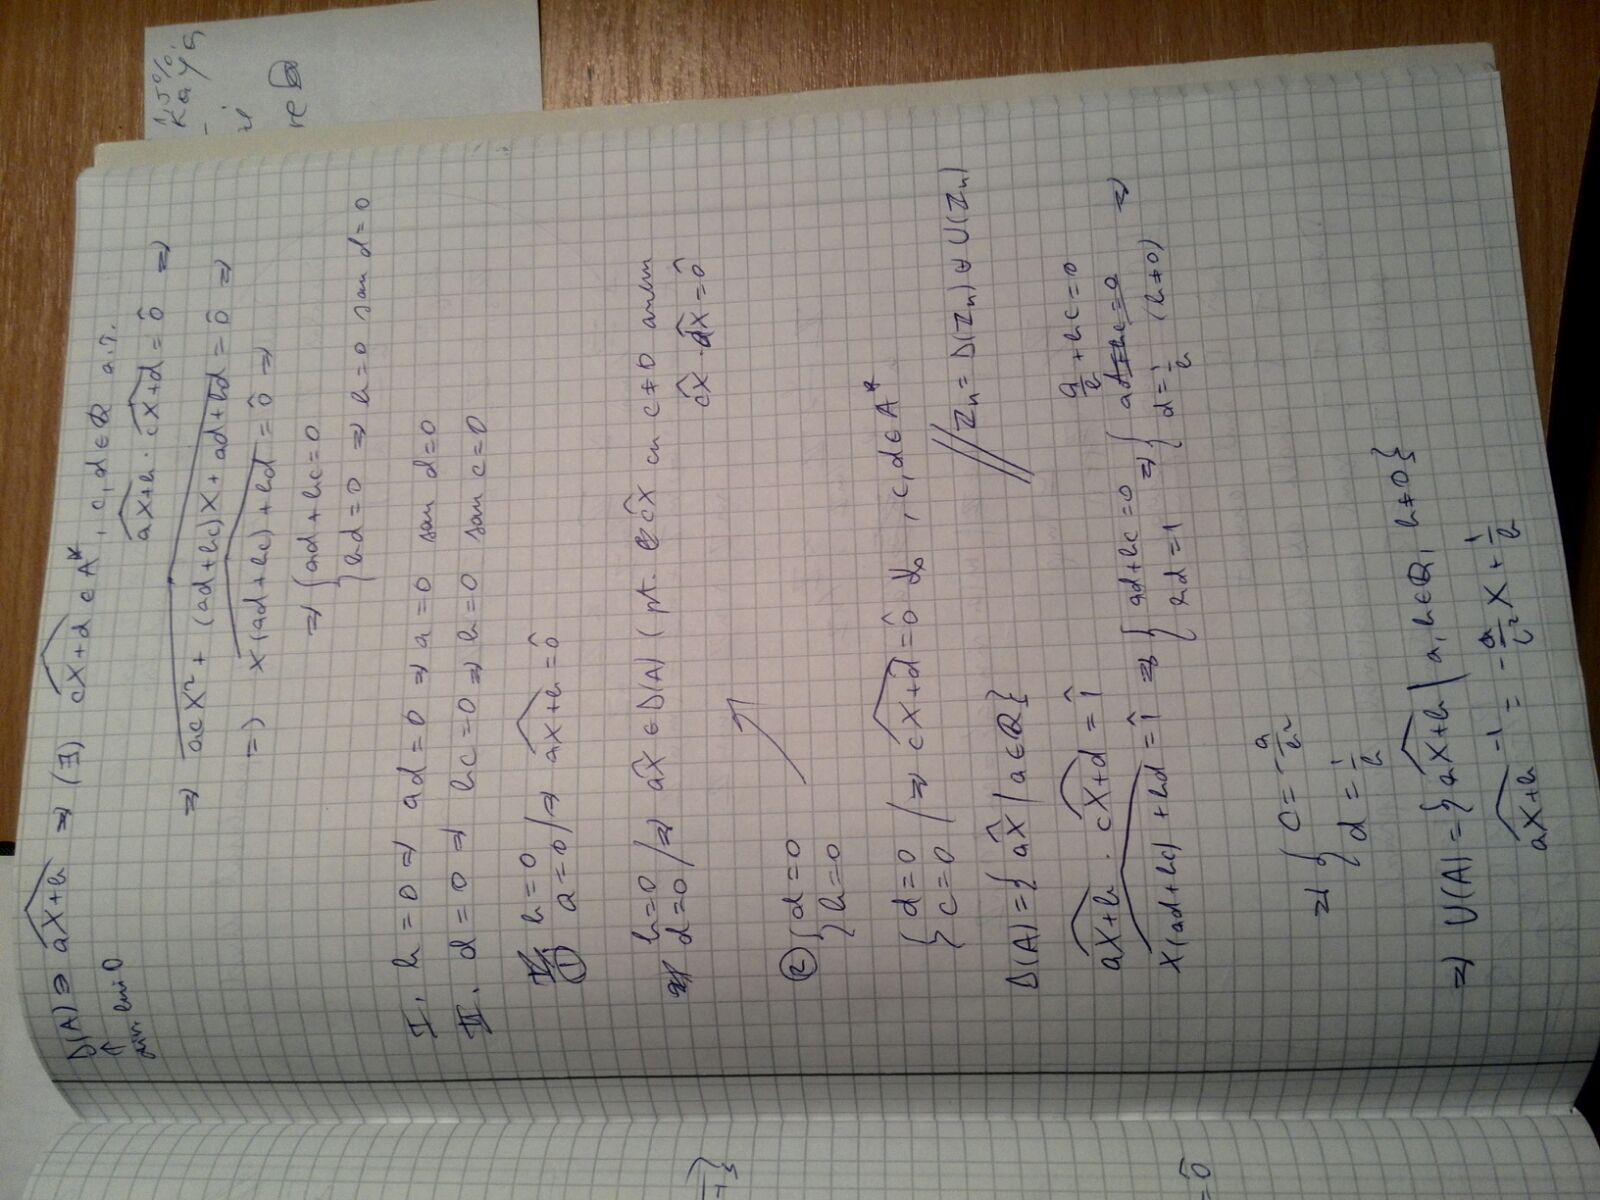 D(A) ∋ \widehat{aX+b} ⇒ (∃) \widehat{cX+d} ∈ A*, c,d ∈ ℚ a.î.
↑
div. lui 0
\widehat{aX+b} · \widehat{cX+d} = \hat{0} ⇒
⇒ \widehat{acX² + (ad+bc)X + ad+bd} = \hat{0} ⇒
⇒ \widehat{X(ad+bc)+bd} = \hat{0} ⇒
⇒ { ad+bc=0
bd=0 ⇒ b=0 sau d=0
I. b=0 ⇒ ad=0 ⇒ a=0 sau d=0
II. d=0 ⇒ bc=0 ⇒ b=0 sau c=0
① b=0
a=0 / ⇒ \widehat{aX+b} = \hat{0}
b=0
d=0 / ⇒ \widehat{aX} ∈ D(A) (pt. \widehat{cX} cu c≠0 avem
\widehat{cX} · \widehat{aX} = \hat{0}
② { d=0
b=0
{ d=0
c=0 / ⇒ \widehat{cX+d} = \hat{0} , c,d ∈ A*
D(A) = { \widehat{aX} | a ∈ ℚ }
// ℤn = D(ℤn) ⊎ U(ℤn)
\widehat{aX+b} · \widehat{cX+d} = \hat{1}
\widehat{X(ad+bc)+bd} = \hat{1} ⇒ { ad+bc=0
bd=1 ⇒ { a/b + bc=0
ad+bc=0 ⇒
d = 1/b (b≠0)
⇒ { c = -a/b²
d = 1/b
⇒ U(A) = { \widehat{aX+b} | a,b ∈ ℚ, b≠0 }
\widehat{aX+b}⁻¹ = -a/b² X + 1/b
1,5%
Kaya
= \hat{0}